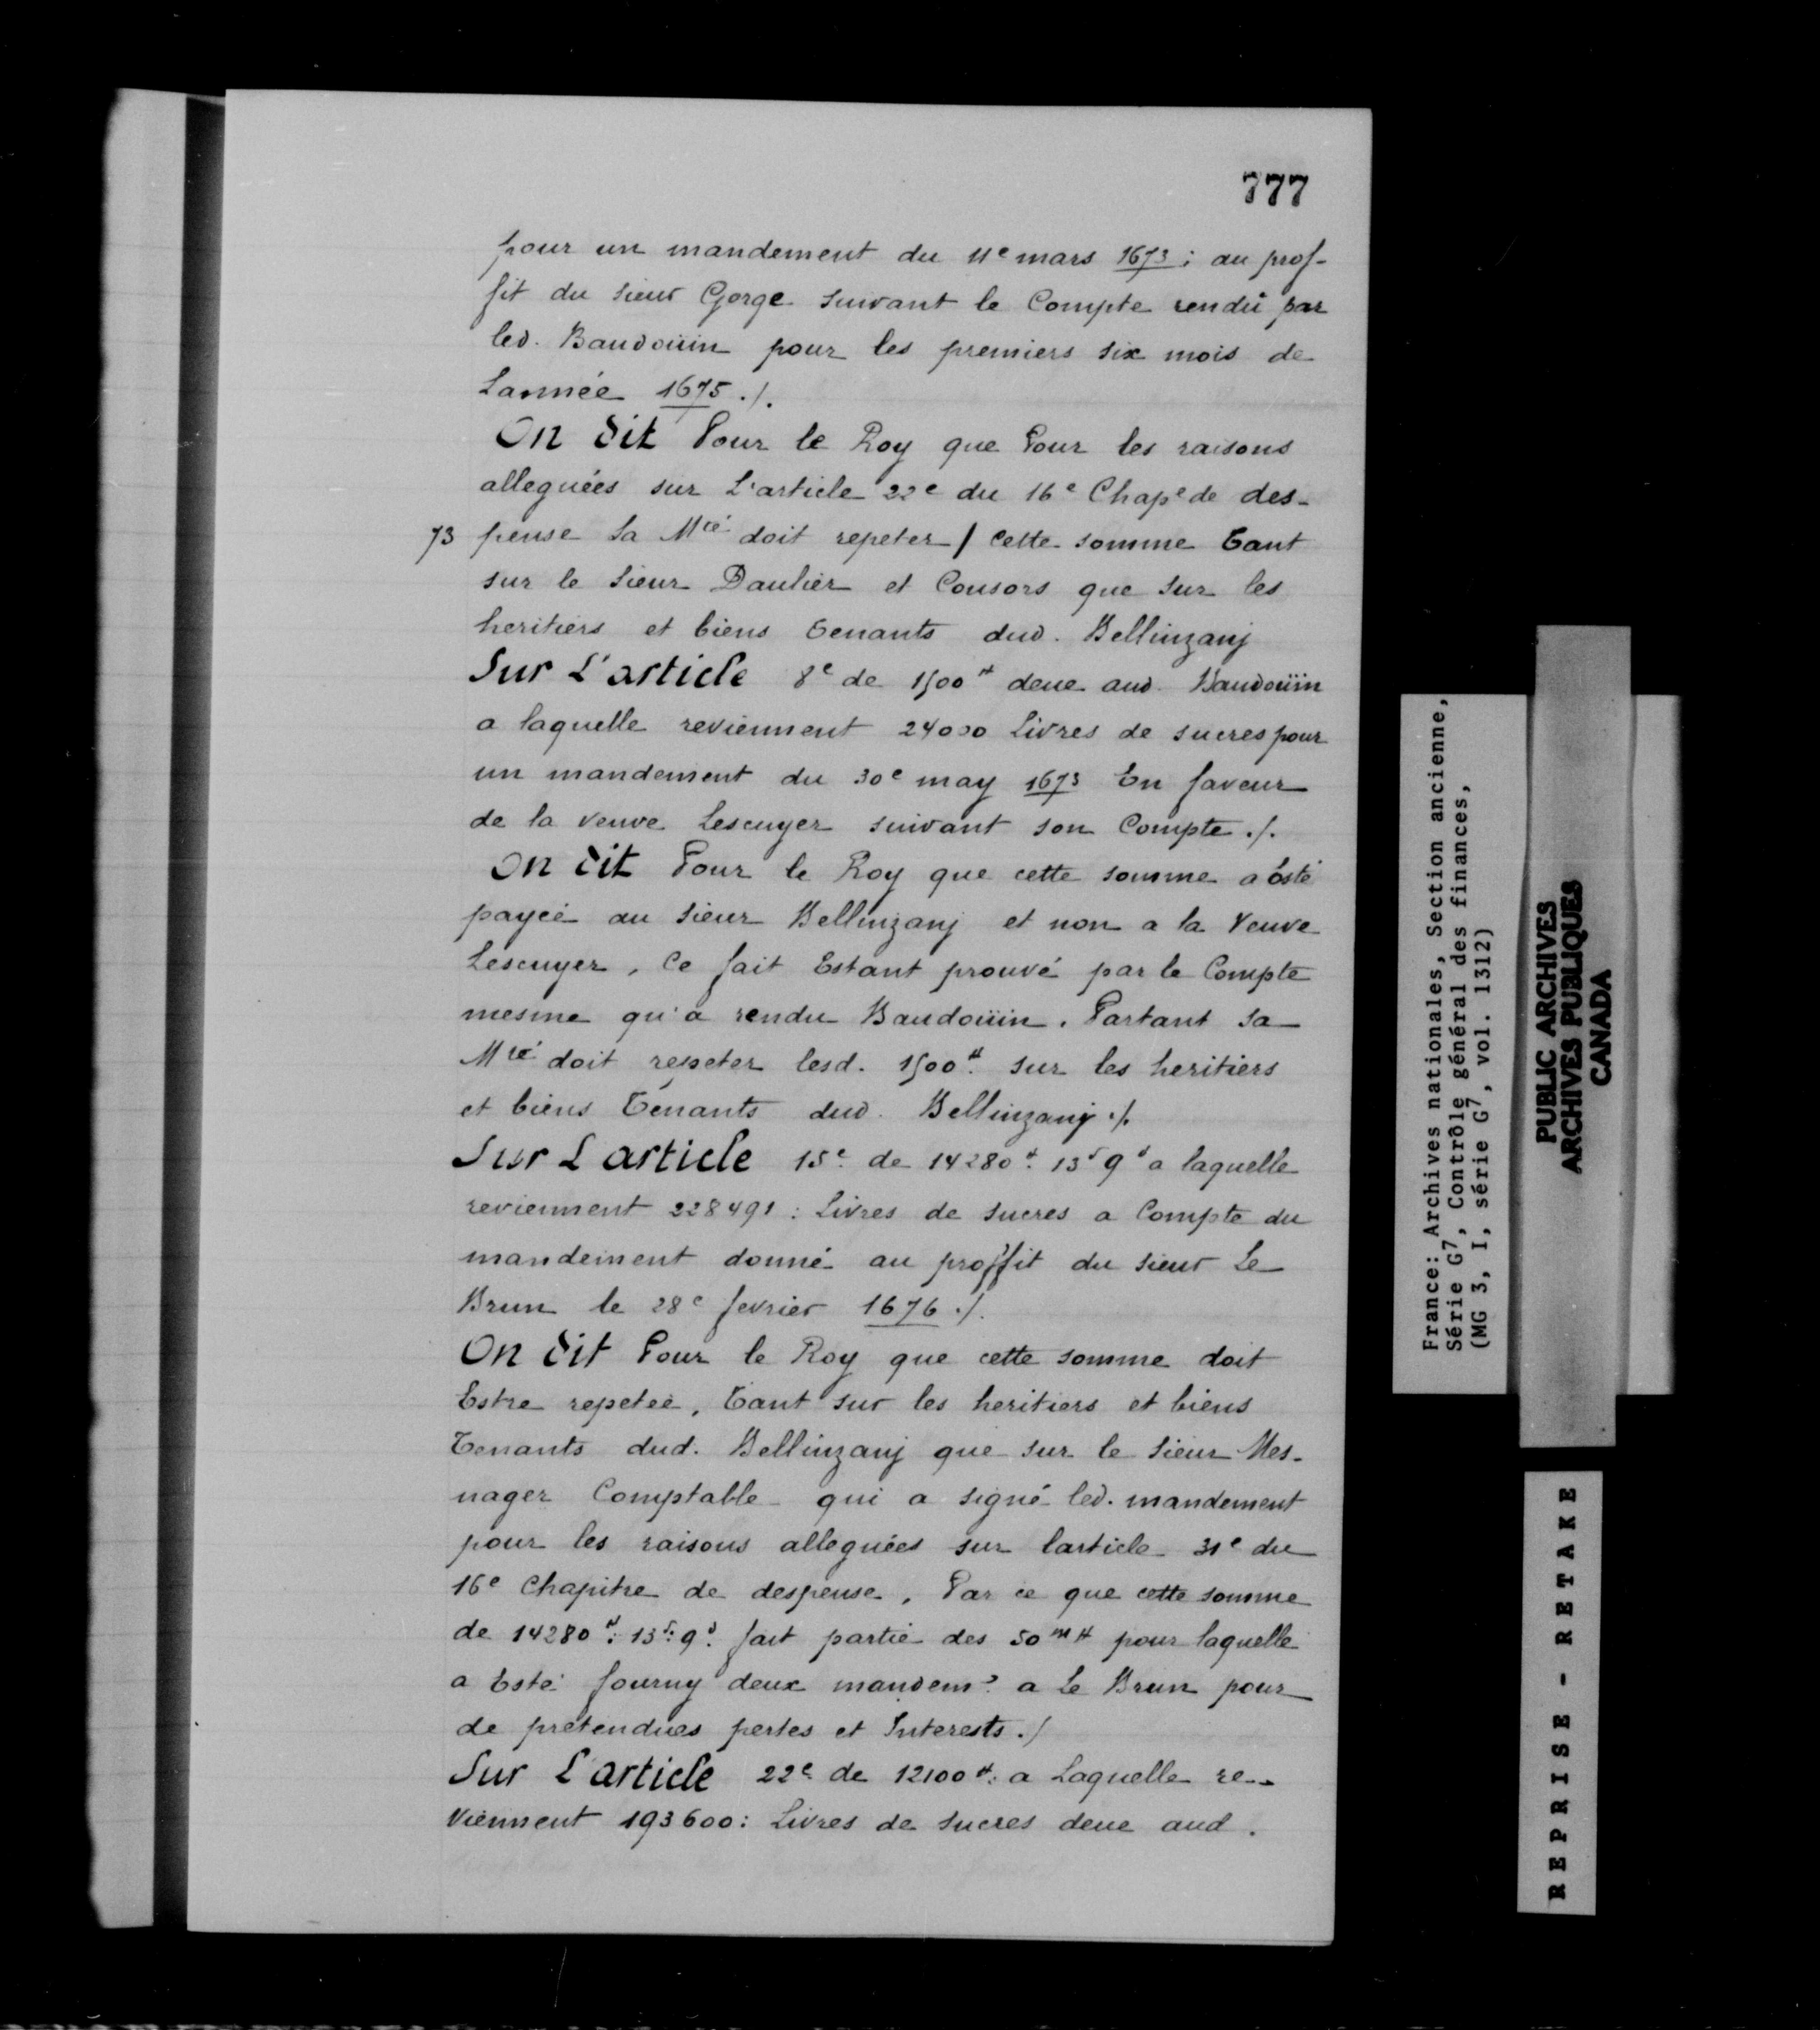 777
pour un mandement du 11e mars 1673 : au prof-
fit du sieur Gorge suivant le Compte rendû par
led. Baudoüin pour les premiers six mois de
Lannée 1675 ./.
On dit Pour le Roy que Pour les raisons
alleguées sur L'article 22e du 16e Chape de des-
73 pense Sa Mté doit repeter / cette somme Tant
sur le Sieur Daulier et Consors que sur les
heritiers et biens Tenants dud. Bellinzanj
Sur L'article 8e de 1500 ₶ deue aud. Baudoüin
a laquelle reviennent 24000 Livres de sucres pour
un mandement du 30e may 1673 En faveur
de la veuve Lescuyer suivant son Compte ./.
On dit Pour le Roy que cette somme a ésté
payée au Sieur Bellinzanj et non a la Veuve
Lescuyer, Ce fait Estant prouvé par le Compte
mesme qu'a rendu Baudoüin. Partant Sa
Mté doit repeter lesd. 1500 ₶. sur les heritiers
et biens Tenants dud. Bellinzanj ./.
Sur L'article 15e. de 14280 ₶. 13s 9d a laquelle
reviennent 228491 : Livres de sucres a Compte du
mandement donné au proffit du sieur Le
Brun le 28e fevrier 1676 ./.
On dit Pour le Roy que cette somme doit
Estre repeteé, Tant sur les heritiers et biens
Tenants dud. Bellinzanj que sur le Sieur Mes-
nager Comptable qui a signé led. mandement
pour les raisons alleguées sur larticle 31e du
16e Chapitre de despense, Par ce que cette somme
de 14280 ₶: 13s: 9d. fait partie des 50 m ₶ pour laquelle
a Esté fourny deux mandemt. a Le Brun pour
de prétendues pertes et Interests ./
Sur L'article 22e de 12100 ₶: a Laquelle re-
Viennent 193600 : Livres de sucres deue aud.
France: Archives nationales, Section ancienne,
Série G7, Contrôle général des finances,
(MG 3, I, série G7, vol. 1312)
PUBLIC ARCHIVES
ARCHIVES PUBLIQUES
CANADA
REPRISE - RETAKE